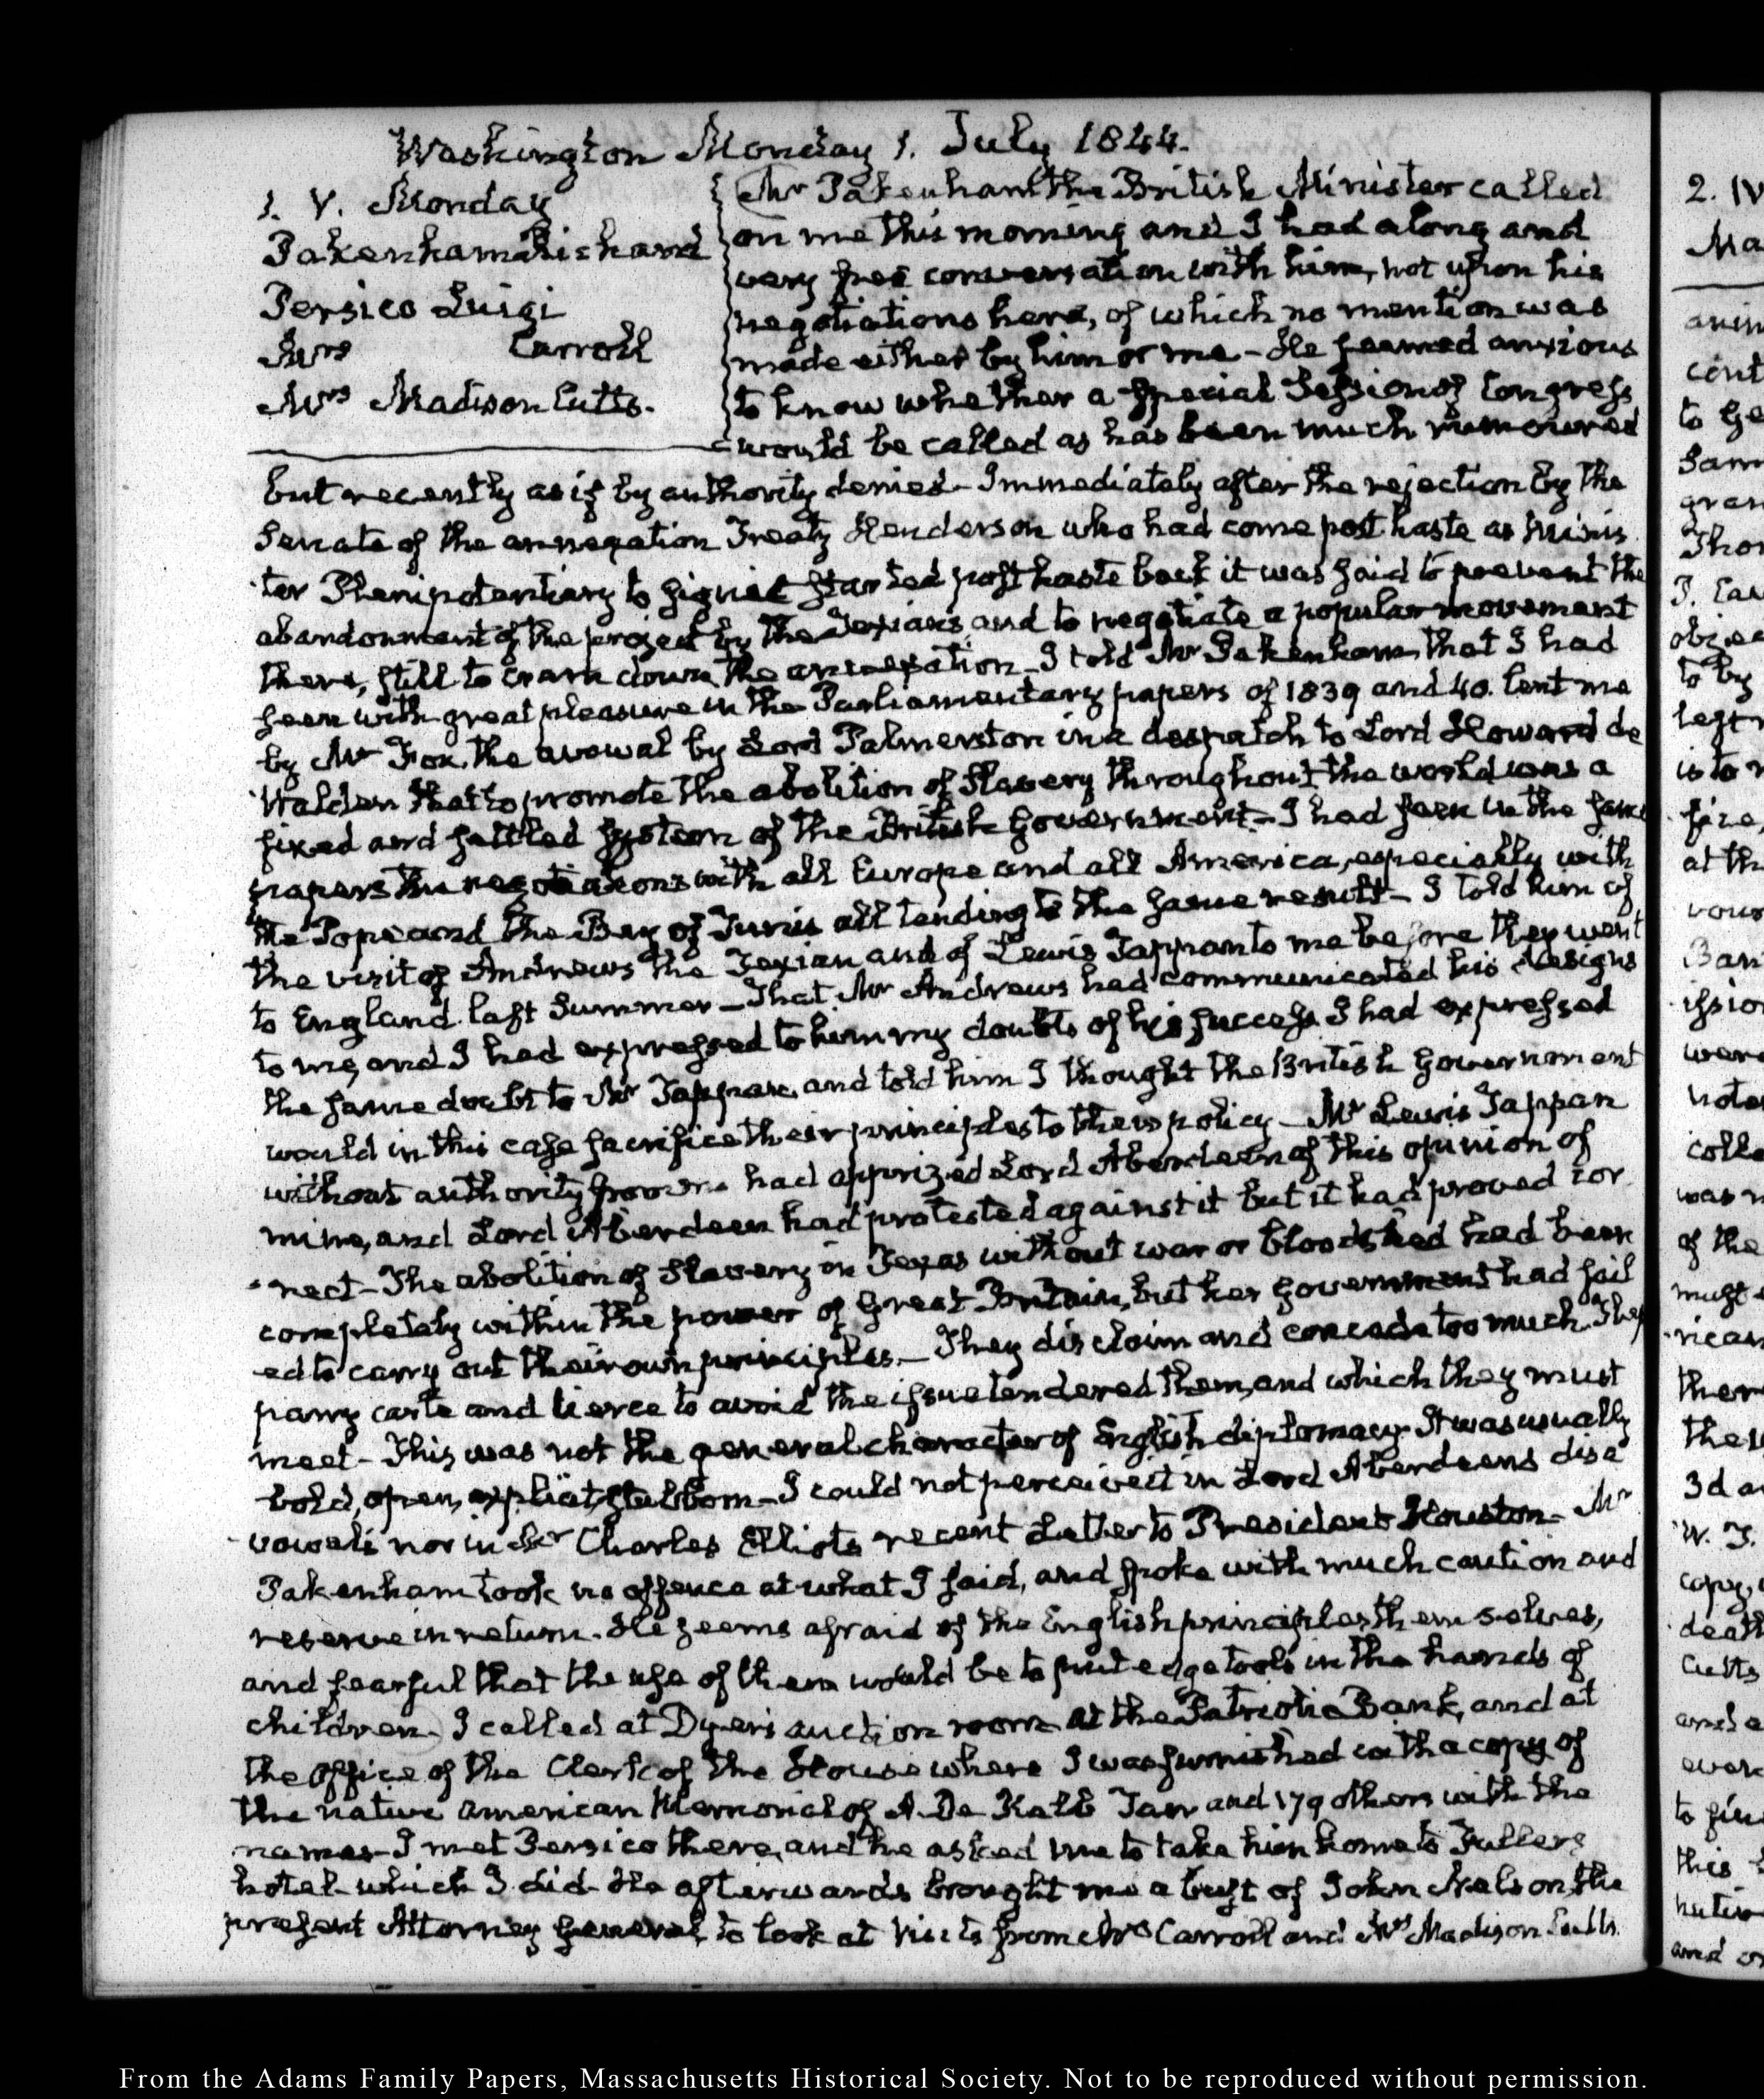 Washington Monday 1. July 1844.
1. V. Monday
Pakenham Richard
Persico Luigi
Mrs Carroll
Mrs Madison Cutts.
Mr Pakenham the British Minister called
on me this morning and I had a long and
very free conversation with him, not upon his
negotiations here, of which no mention was
made either by him or me - He seemed anxious
to know whether a special Session of Congress
would be called as has been much rumoured
but recently as if by authority denied - Immediately after the rejection by the
Senate of the annexation Treaty Henderson who had come post haste as Minis
ter Plenipotentiary to sign it started post haste back it was said to prevent the
abandonment of the project by the Texians and to negotiate a popular movement
there, still to cram down the annexation - I told Mr Pakenham that I had
seen with great pleasure in the Parliamentary papers of 1839 and 40. lent me
by Mr Fox, the avowal by Lord Palmerston in a despatch to Lord Howard de
Walden that to promote the abolition of Slavery throughout the world was a
fixed and settled system of the British Government - I had seen in the same
papers the negotiations with all Europe and all America, especially with
the Pope and the Bey of Tunis all tending to the same result - I told him of
the visit of Andrews the Texian and of Lewis Tappan to me before they went
to England last Summer - That Mr Andrews had communicated his designs
to me, and I had expressed to him my doubts of his success. I had expressed
the same doubt to Mr Tappan, and told him I thought the British Government
would in this case sacrifice their principles to their policy - Mr Lewis Tappan
without authority from me had apprized Lord Aberdeen of this opinion of
mine, and Lord Aberdeen had protested against it but it had proved cor
rect - The abolition of Slavery in Texas without war or bloodshed had been
completely within the power of Great Britain, but her Government had fail
ed to carry out their own principles. - They disclaim and concede too much. They
parry carte and tierce to avoid the issue tendered them, and which they must
meet - This was not the general character of English diplomacy. It was usually
bold, open, explicit, stubborn - I could not perceive it in Lord Aberdeens disa
vowals nor in Sir Charles Elliots recent Letter to President Houston - Mr
Pakenham took no offence at what I said, and spoke with much caution and
reserve in return. He seems afraid of the English principles themselves,
and fearful that the use of them would be to put edge tools in the hands of
children. I called at Dyer's auction room at the Patriotic Bank, and at
the Office of the Clerk of the House where I was furnished with a copy of
the native American Memorial of A. De Kalb Tarr and 179 others with the
names - I met Persico there, and he asked me to take him home to Fullers
hotel which I did - He afterwards brought me a bust of John Nelson, the
present Attorney General, to look at Visits from Mrs Carroll and Mrs Madison Cutts.
2. IV
Ma
cont
to
gran
at th
of the
ther
copy,
death
Cutts
this
From the Adams Family Papers, Massachusetts Historical Society. Not to be reproduced without permission.